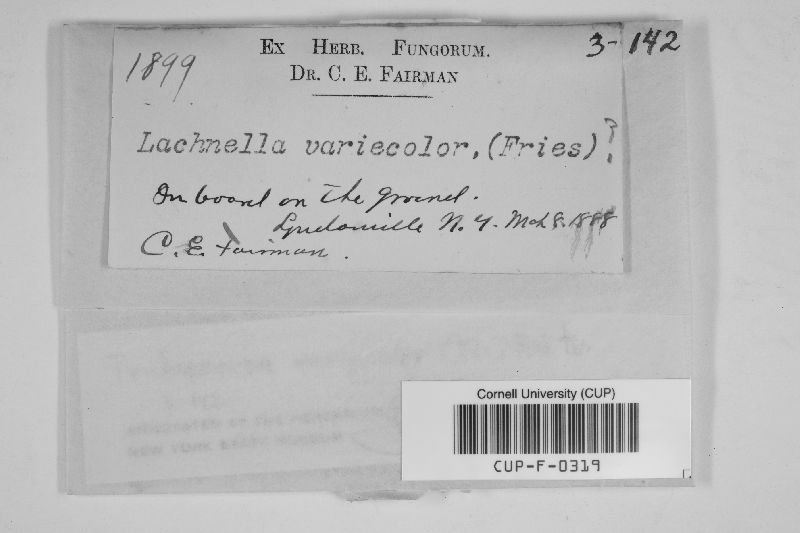 1899
EX HERB. FUNGORUM.
3-142
DR. C. E. FAIRMAN
Lachnella variecolor, (Fries) ?
On board on the ground.
Lyndonville N. Y. Mch 8. 1888
C. E. Fairman.
NEW YORK STATE MUSEUM
Cornell University (CUP)
CUP-F-0319